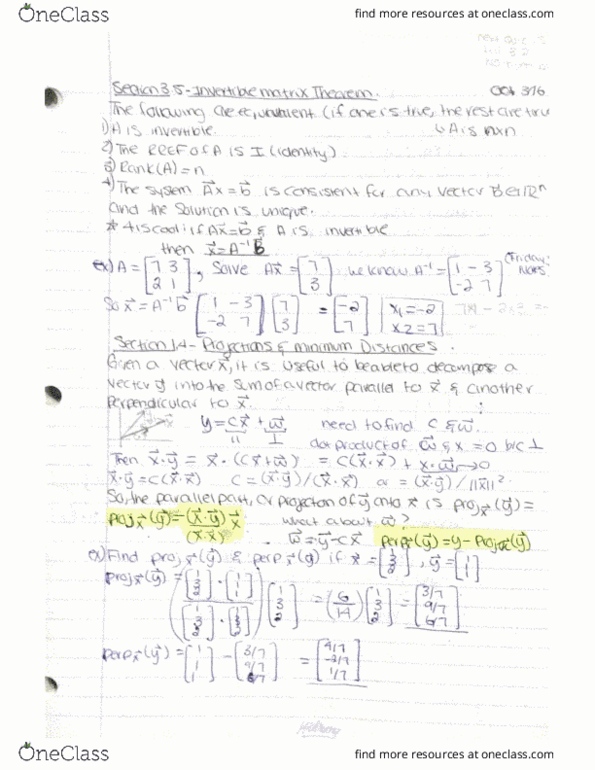 OneClass
find more resources at oneclass.com
Section 3.5 - Invertible matrix Theorem.
Oct 3/16
The following are equivalent (if one is true, the rest are true
1) A is invertible
↳ A is n×n
2) The RREF of A is I (identity)
3) Rank(A) = n
4) The system Ax⃗ = b⃗ is consistent for any vector b⃗ ∈ ℝⁿ
and the solution is unique.
* 4 is cool: if Ax⃗ = b⃗ & A is invertible
then x⃗ = A⁻¹b⃗
ex) A = [7 3; 2 1], Solve Ax⃗ = [7; 3] we know A⁻¹ = [1 -3; -2 7] (Friday Notes
So x⃗ = A⁻¹b⃗ [1 -3; -2 7] [7; 3] = [-2; 7] x₁ = -2 x₂ = 7
Section 1.4 - Projections & minimum Distances.
Given a vector x⃗, it is useful to be able to decompose a
vector y⃗ into the sum of a vector parallel to x⃗ & another
perpendicular to x⃗.
y = cx⃗ + w⃗ need to find c & w⃗.
|| ⊥ dot product of w⃗ & x = 0 b/c ⊥
Then x⃗·y⃗ = x⃗·(cx⃗+w⃗) = c(x⃗·x⃗) + x·w⃗→0
x⃗·y⃗ = c(x⃗·x⃗) c = (x⃗·y⃗)/(x⃗·x⃗) or = (x⃗·y⃗)/||x⃗||²
So, the parallel part, or projection of y⃗ onto x⃗ is proj x⃗(y⃗) =
proj x⃗(y⃗) = (x⃗·y⃗)/(x⃗·x⃗) x⃗ what about w⃗?
w⃗ = y⃗ - cx⃗ perp x⃗(y⃗) = y - proj x⃗(y⃗)
ex) Find proj x⃗(y⃗) & perp x⃗(y) if x⃗ = [1; 3; 2], y⃗ = [1; 1; 1]
proj x⃗(y⃗) = ([1; 3; 2]·[1; 1; 1] / [1; 3; 2]·[1; 3; 2]) [1; 3; 2] = (6/14) [1; 3; 2] = [3/7; 9/7; 6/7]
perp x⃗(y⃗) = [1; 1; 1] - [3/7; 9/7; 6/7] = [4/7; -2/7; 1/7]
Hilroy
OneClass
find more resources at oneclass.com